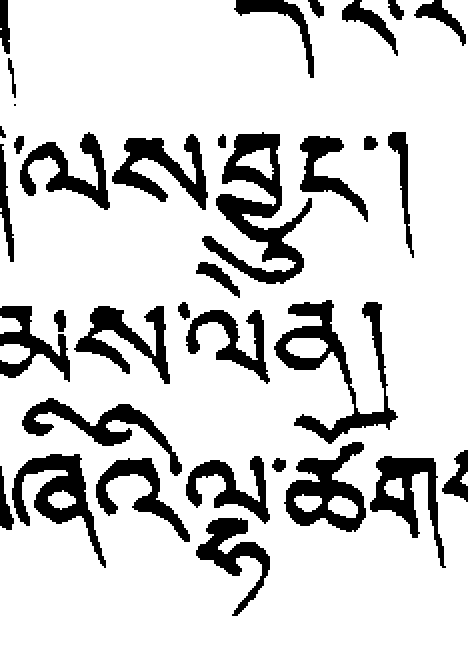 ལས་བྱུང་།
མས་ལན།
ཞིའི་ལྷ་ཚོགས